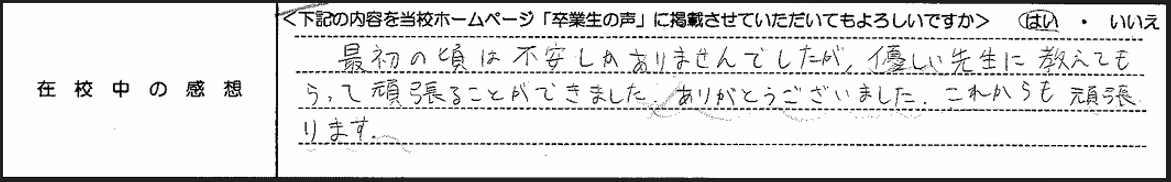 <下記の内容を当校ホームページ「卒業生の声」に掲載させていただいてもよろしいですか> はい ・ いいえ
在校中の感想
最初の頃は不安しかありませんでしたが、優しい先生に教えても
らって頑張ることができました。ありがとうございました。これからも頑張
ります。